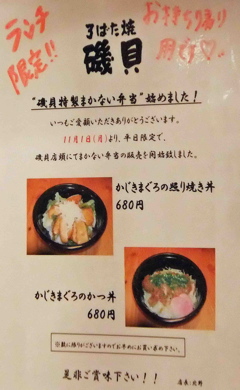 ランチ
限定!!
お持ち帰り
用意♡
ろばた焼
磯貝
"磯貝特製まかない弁当"始めました！
いつもご愛顧いただきありがとうございます。
11月1日(月)より、平日限定で、
磯貝店頭にてまかない弁当の販売を開始致しました。
かじきまぐろの照り焼き丼
680円
かじきまぐろのかつ丼
680円
※数に限りがございますのでお早めにお買い求め下さい。
是非ご賞味下さい！！
店長：